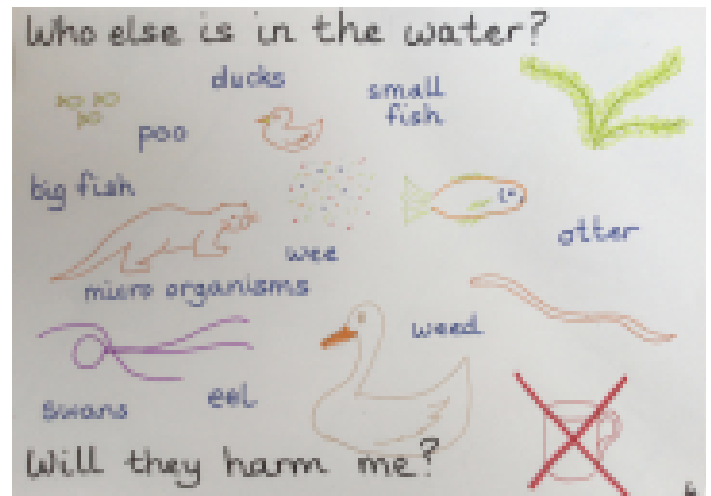 Who else is in the water?
ducks
small
fish
poo
big fish
otter
wee
micro organisms
weed
eel
swans
Will they harm me?